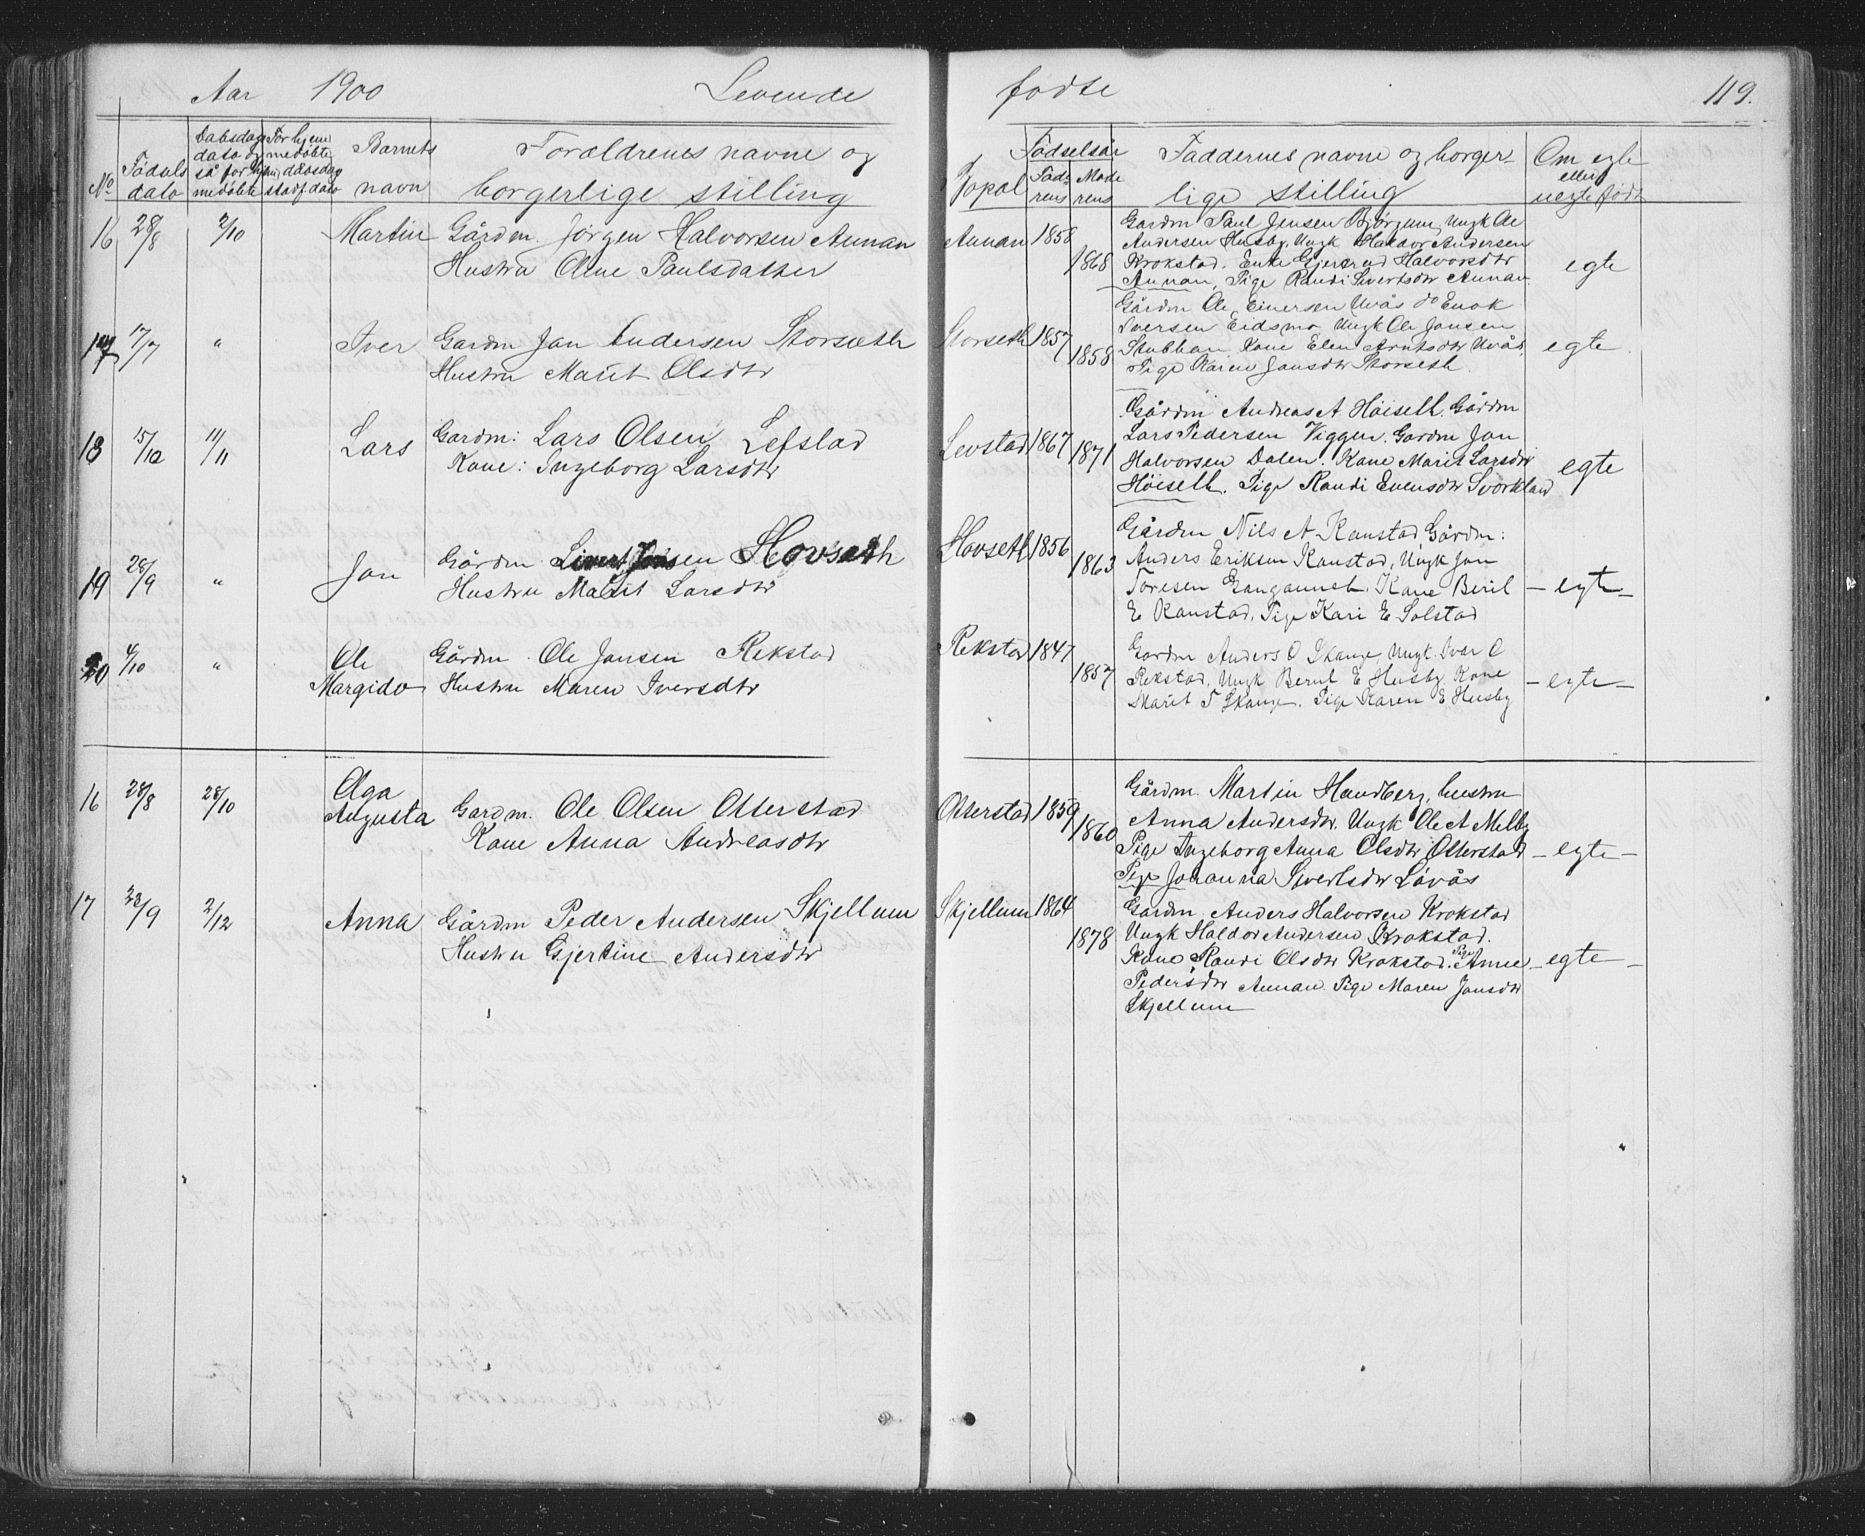 Aar 1900 Levende
fødte 119.
No
Fødsels
dato
Dåbsdags
dato og
så for hjem
medøbte
For hjem
medøbte
dåbsdag
stadf. dato
Barnets
navn
Forældrenes navne og
borgerlige stilling
Bopæl
Fødselsår
Fad-
rens
Mode
rens
Faddernes navne og borger-
lige stilling
Om egte
eller
uegte født
16 28/8 2/10 Martin Gårdm. Jörgen Halvorsen Aunan
Hustru Oline Paulsdatter
Aunan 1858
1868
Gårdm Paul Jensen Bjørgum, Ungk Ole
Andersen Husby, Ungk Haldor Andersen
Krokstad. Enke Gjertrud Halvorsdtr
Aunan, Pige Randi Sivertsdtr Aunan
egte
17 17/7 " Iver Gardm Jon Andersen Storseth
Hustru Marit Olsdtr
Storseth 1857
1858
Gårdm Ole Einersen Uvås do Enok
Iversen Eidsmo Ungk Ole Jonsen
Stubban Kone Elen Arntsdtr Uvås,
Pige Karen Jonsdtr Storseth.
egte
18 15/10 11/11 Lars Gardm: Lars Olsen Lefstad
Kone: Ingeborg Larsdtr
Levstad 1867
1871
Gårdm Andreas A. Höiseth. Gårdm
Lars Pedersen Viggen. Gardm Jon
Halvorsen Dalen. Kone Marit Larsdtr
Höiseth. Pige Randi Evensdtr Svorkland
egte
19 28/9 " Jon Gårdm Sivert Jonsen Hovseth
Hustru Marit Larsdtr
Hovseth 1856
1863
Gårdm Nils A. Ranstad, Gårdm:
Anders Eriksen Ranstad, Ungk Jon
Toresen Gangaunet. Kone Beril
E Ranstad, Pige Kari E Solstad
– egte –
20 4/10 " Ole
Margido
Gårdm Ole Jonsen Rekstad
Hustru Maren Iversdtr
Rekstad 1847
1857
Gardm Anders O Skauge Ungk. Ivar O
Rekstad, Ungk Bernt E Husby. Kone
Marit T Skauge. Pige Karen E Husby
– egte –
16 28/8 28/10 Olga
Augusta
Gardm. Ole Olsen Otterstad
Kone Anna Andreasdtr
Otterstad 1859
1860
Gårdm. Martin Handberg, hustru
Anna Andersdtr. Ungk Ole A Melby
Pige Ingeborg Anna Olsdtr Otterstad
Pige Johanna Sivertsdtr Låvås
– egte –
17 23/9 2/12 Anna Gårdm Peder Andersen Skjellum
Hustru Gjertine Andersdtr
Skjellum 1864
1878
Gardm. Anders Halvorsen Krokstad
Ungk Haldor Andersen Krokstad.
Kone Randi Olsdtr Krokstad. Pige Anne
Pedersdtr Aunan. Pige Maren Jonsdtr
Skjellum
– egte –